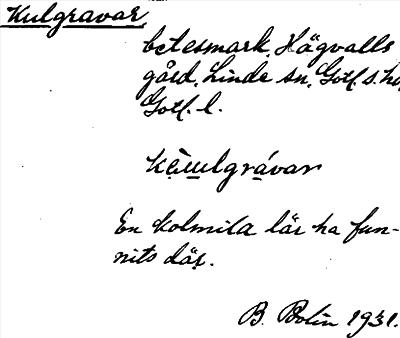 Kulgravar
betesmark. Hägvalls
gård. Linde sn. Gotl. s. hd
Gotl. l.
En kolmila lär ha fun-
nits där.
B. Bolin 1931.